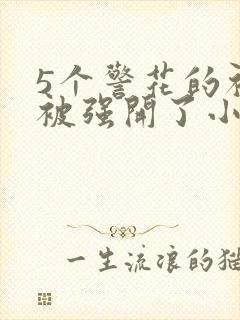 5个警花的
被强開了小
一生流浪的猫